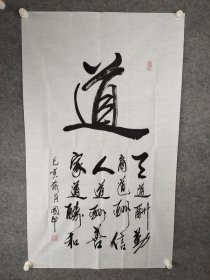 道
天道酬勤
商道酬信
人道酬善
家道酬和
己亥